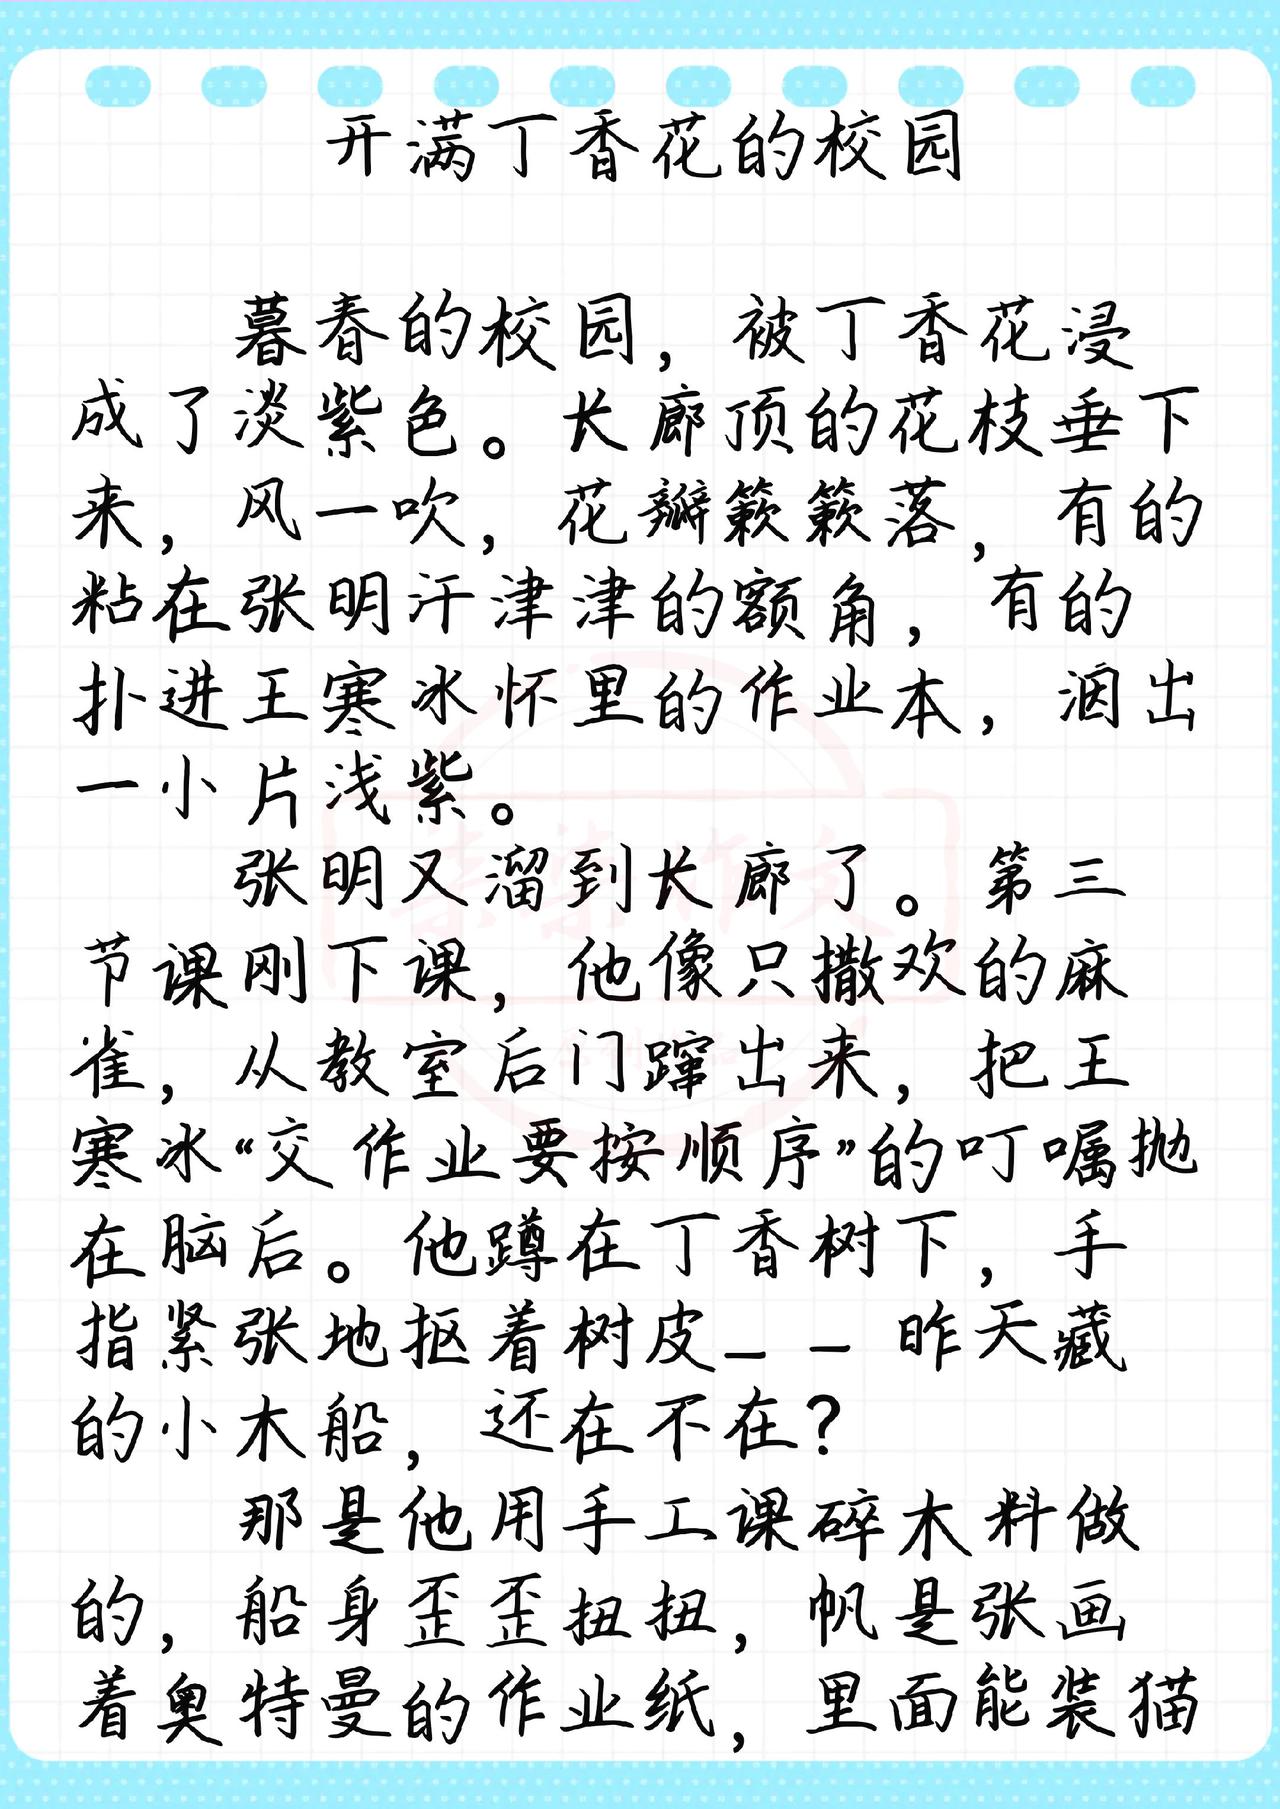 开满丁香花的校园
暮春的校园，被丁香花浸
成了淡紫色。长廊顶的花枝垂下
来，风一吹，花瓣簌簌落，有的
粘在张明汗津津的额角，有的
扑进王寒冰怀里的作业本，洇出
一小片浅紫。
张明又溜到长廊了。第三
节课刚下课，他像只撒欢的麻
雀，从教室后门蹿出来，把王
寒冰“交作业要按顺序”的叮嘱抛
在脑后。他蹲在丁香树下，手
指紧张地抠着树皮——昨天藏
的小木船，还在不在？
那是他用手工课碎木料做
的，船身歪歪扭扭，帆是张画
着奥特曼的作业纸，里面能装猫